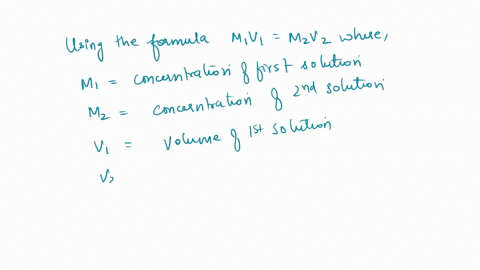 Using the formula M₁V₁ = M₂V₂ where,
M₁ = concentration of first solution
M₂ = concentration of 2nd solution
V₁ = Volume of 1st solution
V₂